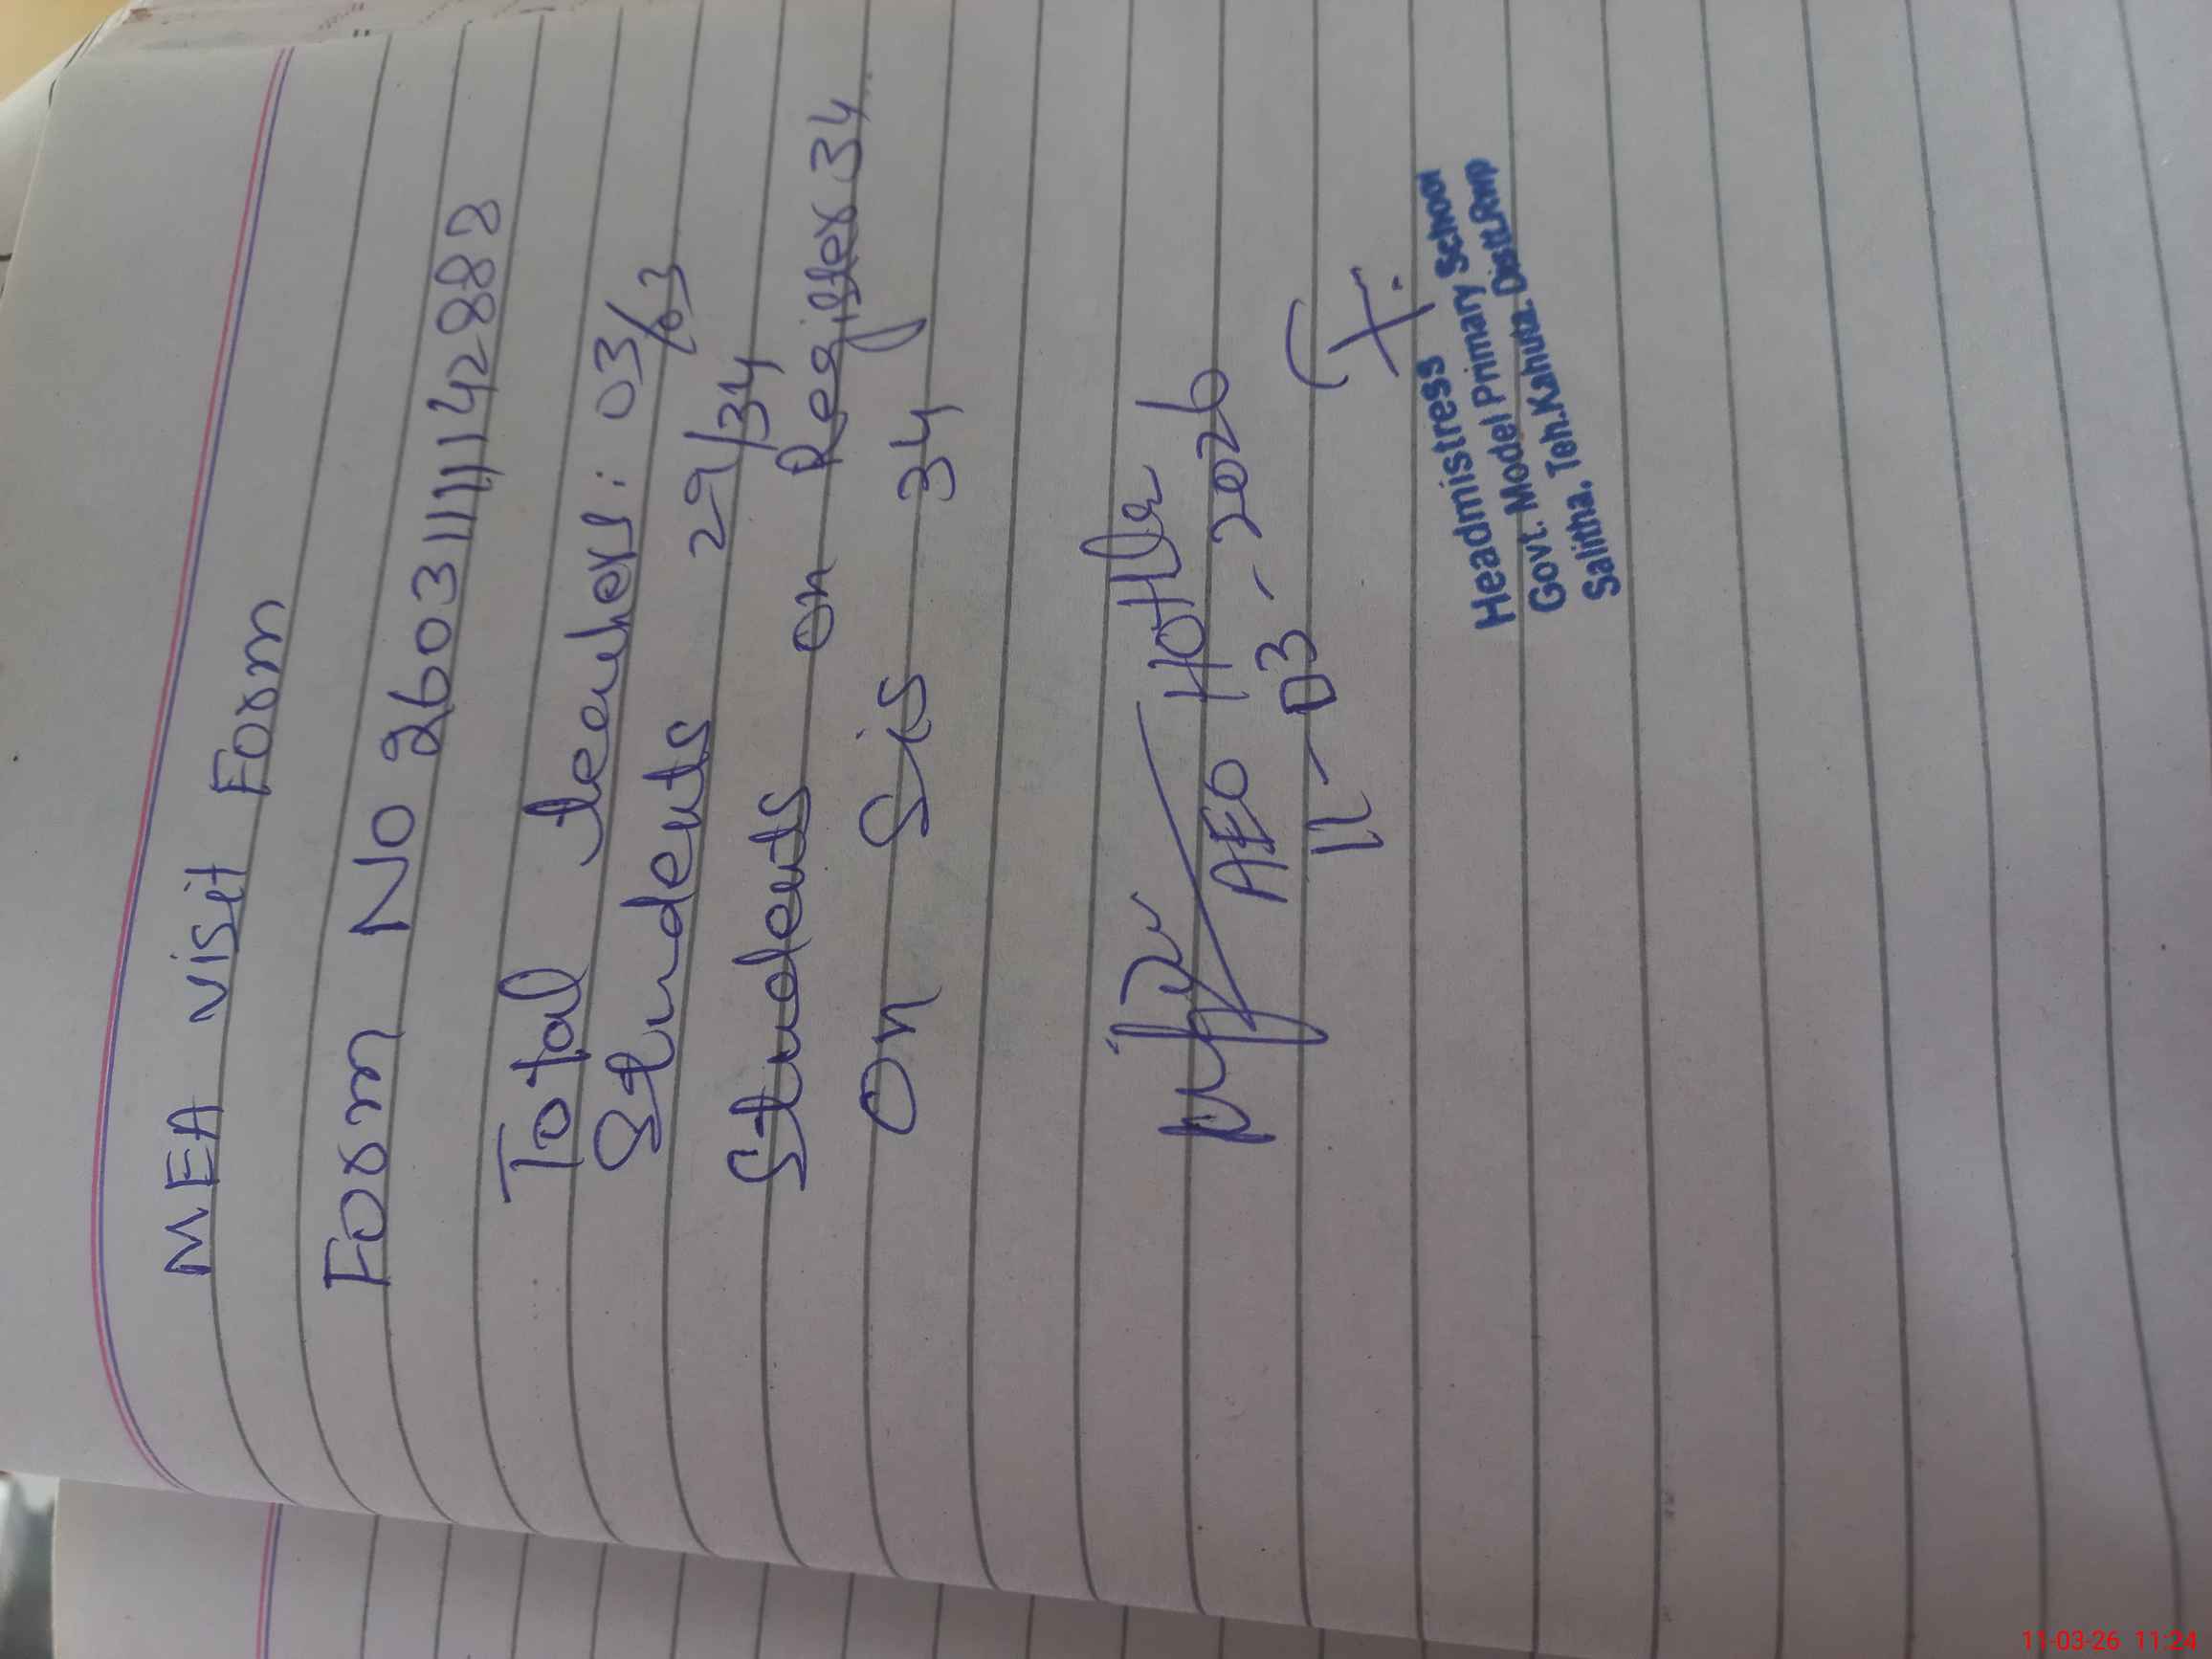 MEA Visit Form
Form No 26031111142888
Total teachers: 03/03
Students 29/34
Students on Register 34
On Sis 34
AEO Hothla
11-03-2026
Headmistress
Govt. Model Primary School
Salitha, Teh.Kahuta. Distt.Rwp
11-03-26 11:24